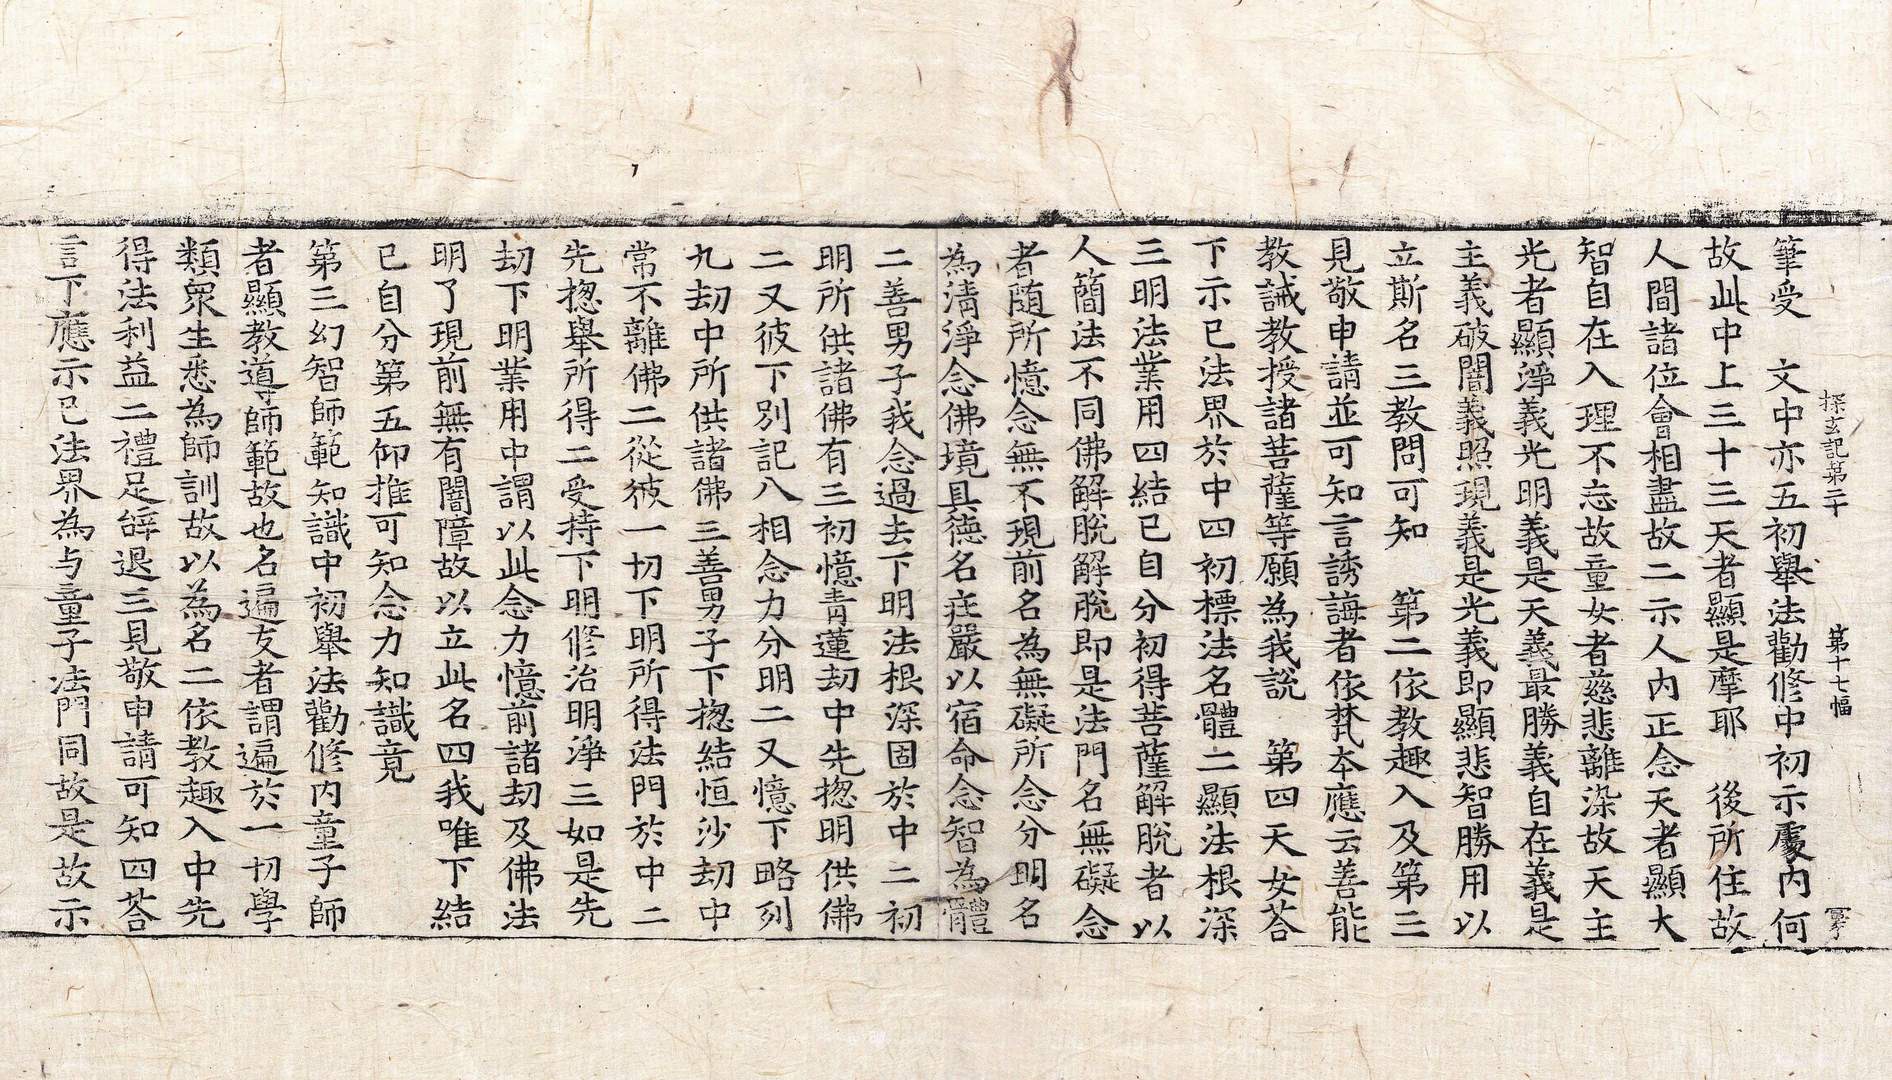 探玄記第二十 第十七幅
筆受 文中亦五初舉法勸修中初示處內何
故此中上三十三天者顯是摩耶 後所住故
人間諸位會相盡故二示人內正念天者顯大
智自在入理不忘故童女者慈悲離染故天主
光者顯淨義光明義是天義最勝義自在義是
主義破闇義照現義是光義即顯悲智勝用以
立斯名三教問可知 第二依教趣入及第三
見敬申請並可知言誘誨者依梵本應云善能
教誡教授諸菩薩等願為我說 第四天女荅
下示已法界於中四初標法名體二顯法根深
三明法業用四結已自分初得菩薩解脫者以
人簡法不同佛解脫解脫即是法門名無礙念
者随所憶念無不現前名為無礙所念分明名
為清淨念佛境具德名庄嚴以宿命念智為體
二善男子我念過去下明法根深固於中二初
明所供諸佛有三初憶青蓮劫中先揔明供佛
二又彼下別記八相念力分明二又憶下略列
九劫中所供諸佛三善男子下揔結恒沙劫中
常不離佛二從彼一切下明所得法門於中二
先揔舉所得二受持下明修治明淨三如是先
劫下明業用中謂以此念力憶前諸劫及佛法
明了現前無有闇障故以立此名四我唯下結
已自分第五仰推可知念力知識竟
第三幻智師範知識中初舉法勸修內童子師
者顯教導師範故也名遍友者謂遍於一切學
類衆生悉為師訓故以為名二依教趣入中先
得法利益二禮足辞退三見敬申請可知四荅
言下應示已法界為与童子法門同故是故示